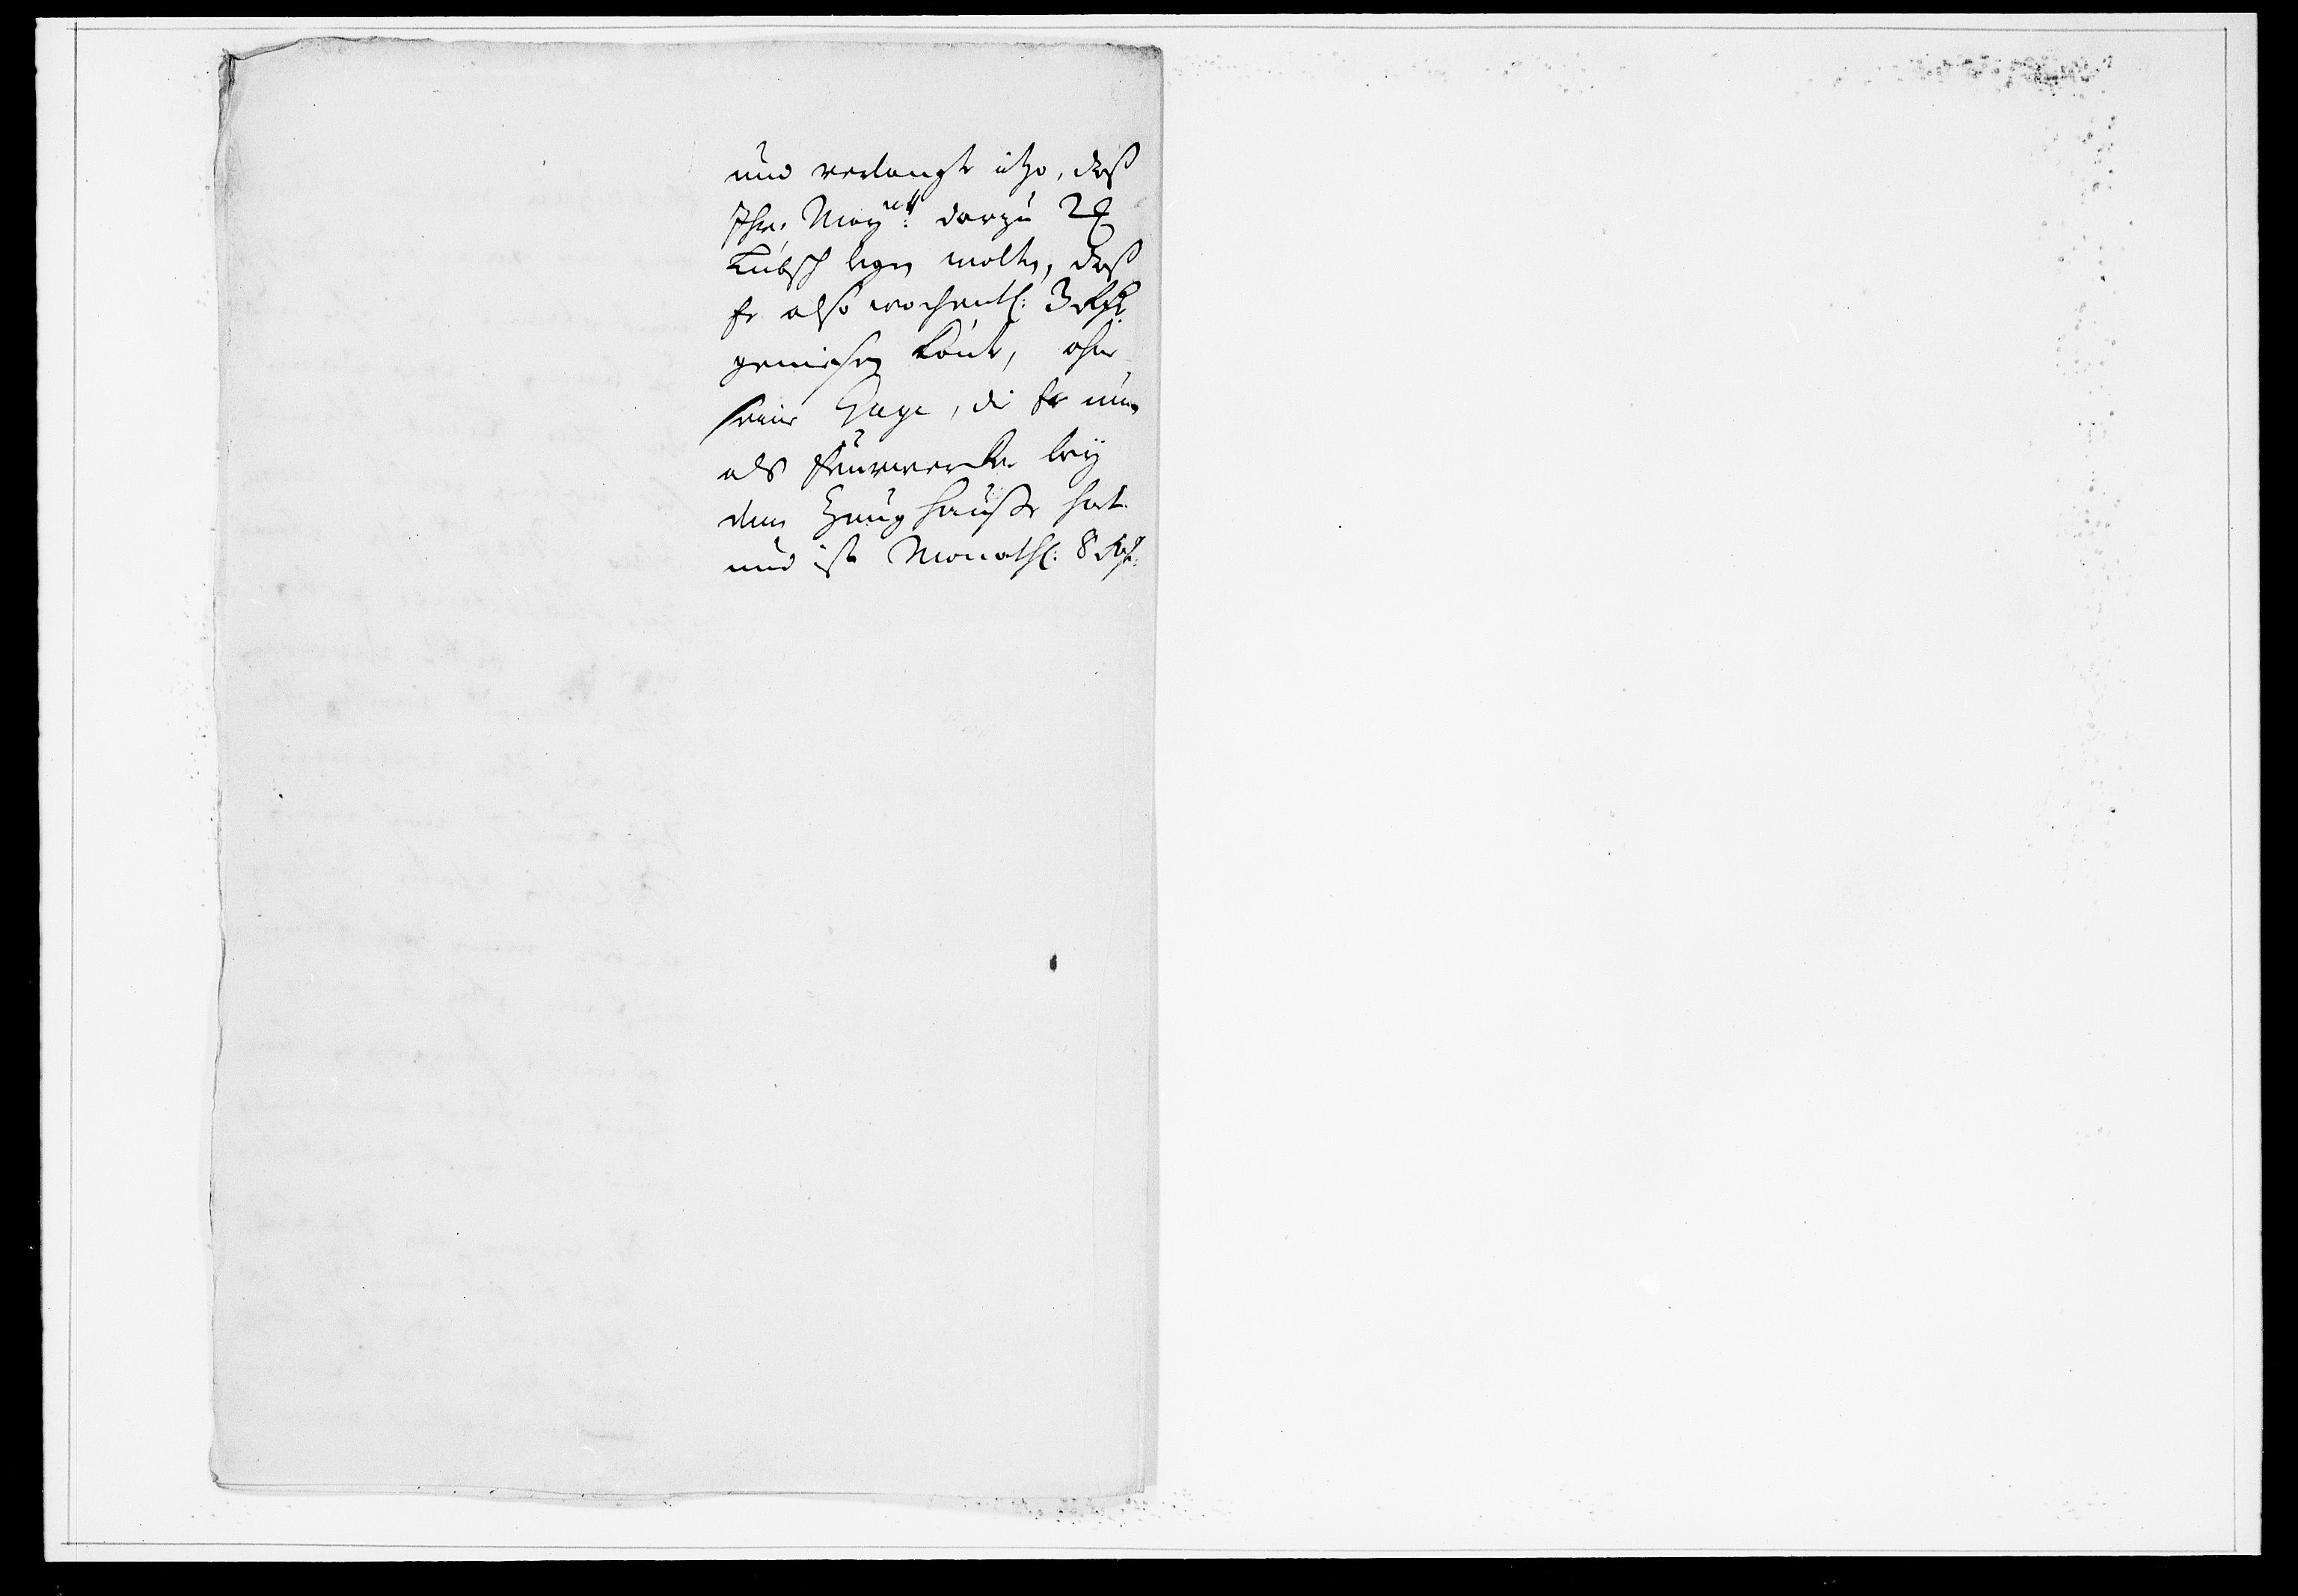 und verlangt itzo, daß
Ihr. Maytt: darzu 2 ℔
Lübsch legen wolten, daß
Er also wochentl: 3 Rthlr
geniesen könte, ohne
seine Gage, die Er nun
als Feürwercker bey
dem Zeughauße hat
und ist Monathl: 8 Rthl: